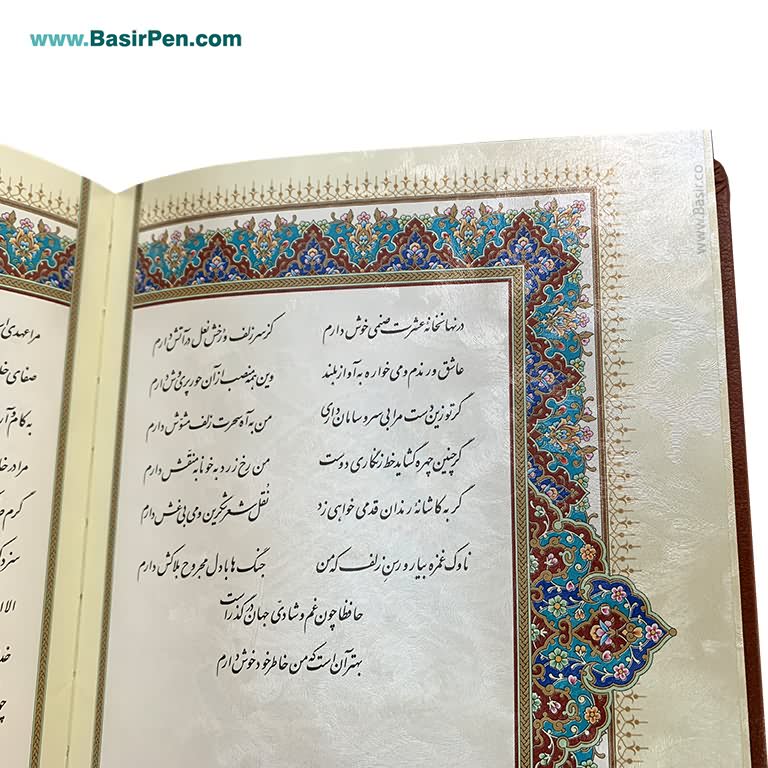 www.BasirPen.com
www.Basir.co
در نهانخانهٔ عشرت صنمی خوش دارم
کز سر زلف و رخش نعل در آتش دارم
عاشق و رندم و میخواره به آواز بلند
وین همه منصب از آن حور پریوش دارم
گر تو زین دست مرا بی سر و سامان داری
من به آه سحرت زلف مشوش دارم
گر چنین چهره گشاید خط زنگاری دوست
من رخ زرد به خونابه منقش دارم
گر به کاشانهٔ رندان قدمی خواهی زد
نُقل شعر شکرین و می بی غش دارم
ناوک غمزه بیار و رسن زلف که من
جنگ ها با دل مجروح بلاکش دارم
حافظا چون غم و شادی جهان در گذر است
بهتر آن است که من خاطر خود خوش دارم
مرا عهدی
صفای
به کام
مرا در
گرم
الا